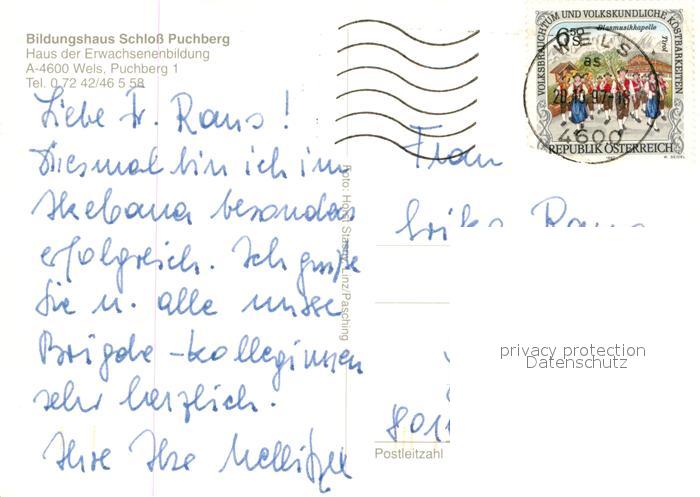 Bildungshaus Schloß Puchberg
Haus der Erwachsenenbildung
A-4600 Wels, Puchberg 1
Tel. 0 72 42/46 5 58
Liebe Fr. Rans!
Diesmal bin ich im
Ikebana besonders
erfolgreich. Ich grüße
Sie u. alle unsere
Brigde-kolleginnen
sehr herzlich.
Ihre Ilse
Foto: Horst Stasny, Linz/Pasching
BLASMUSIKKAPELLE
VOLKSBRAUCHTUM UND VOLKSKUNDLICHE KOSTBARKEITEN
Tirol
REPUBLIK ÖSTERREICH
WELS
as
4600
Frau
Erika Rans
801
Postleitzahl
privacy protection
Datenschutz